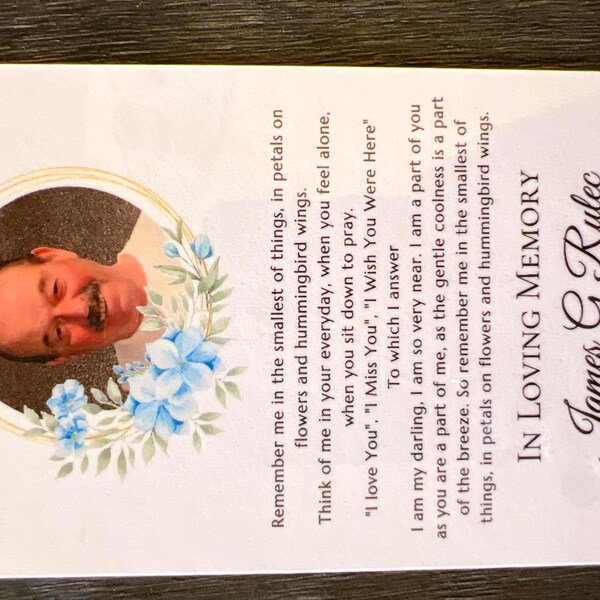 Remember me in the smallest of things, in petals on
flowers and hummingbird wings.
Think of me in your everyday, when you feel alone,
when you sit down to pray.
"I love You", "I Miss You", "I Wish You Were Here"
To which I answer
I am my darling, I am so very near. I am a part of you
as you are a part of me, as the gentle coolness is a part
of the breeze. So remember me in the smallest of
things, in petals on flowers and hummingbird wings.
IN LOVING MEMORY
James G Rulec